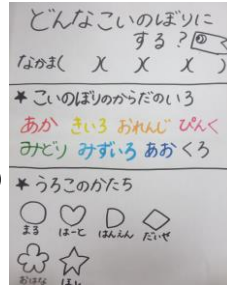 どんなこいのぼりに
する?
なかま(　)(　)(　)(　)
★こいのぼりのからだのいろ
あか きいろ おれんじ ぴんく
みどり みずいろ あお くろ
★うろこのかたち
まる はーと はんえん だいや
おはな ほし